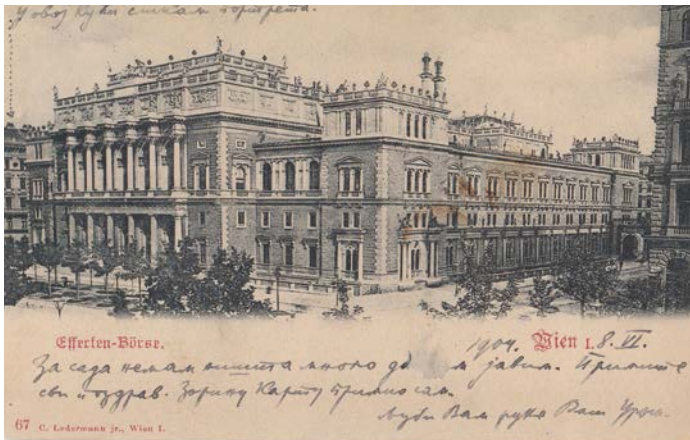 У овој кући сликам портрета.
Effecten-Börse.
1904. Wien I. 8. VI.
За сада немам ништа много да м јавим. Примите
сви поздрав. Зорину Карту примио сам.
љуби Вам руке Ваш Урош.
67 C. Ledermann jr., Wien I.